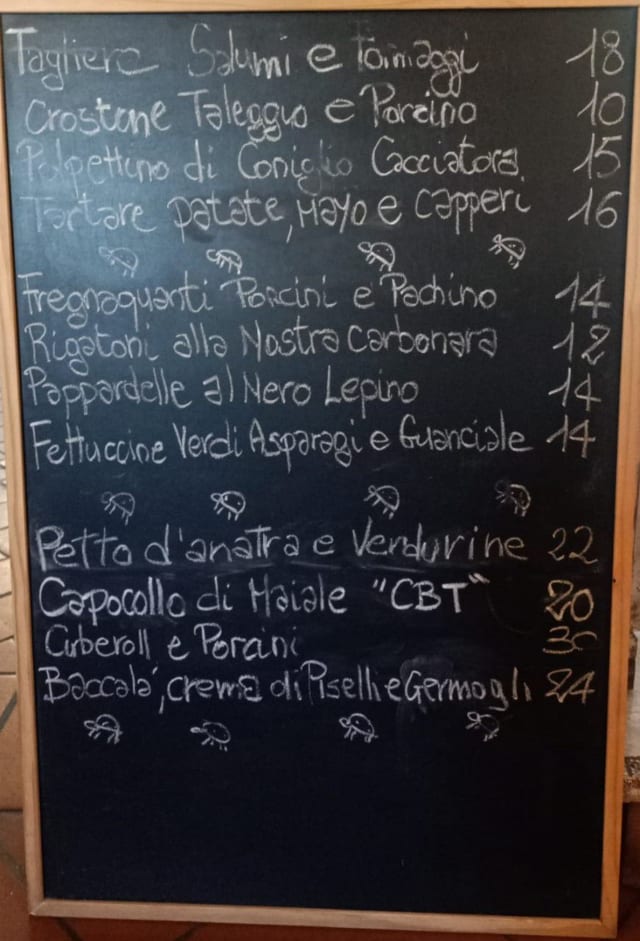 Tagliere Salumi e Formaggi 18
Crostone Taleggio e Porcino 10
Polpettine di Coniglio Cacciatora 15
Tartare patate, Mayo e capperi 16
Fregnaquanti Porcini e Pachino 14
Rigatoni alla Nostra Carbonara 12
Pappardelle al Nero Lepino 14
Fettuccine Verdi Asparagi e Guanciale 14
Petto d'anatra e Verdurine 22
Capocollo di Maiale "CBT" 20
Cuberoll e Porcini 30
Baccalà, crema di Piselli e Germogli 24